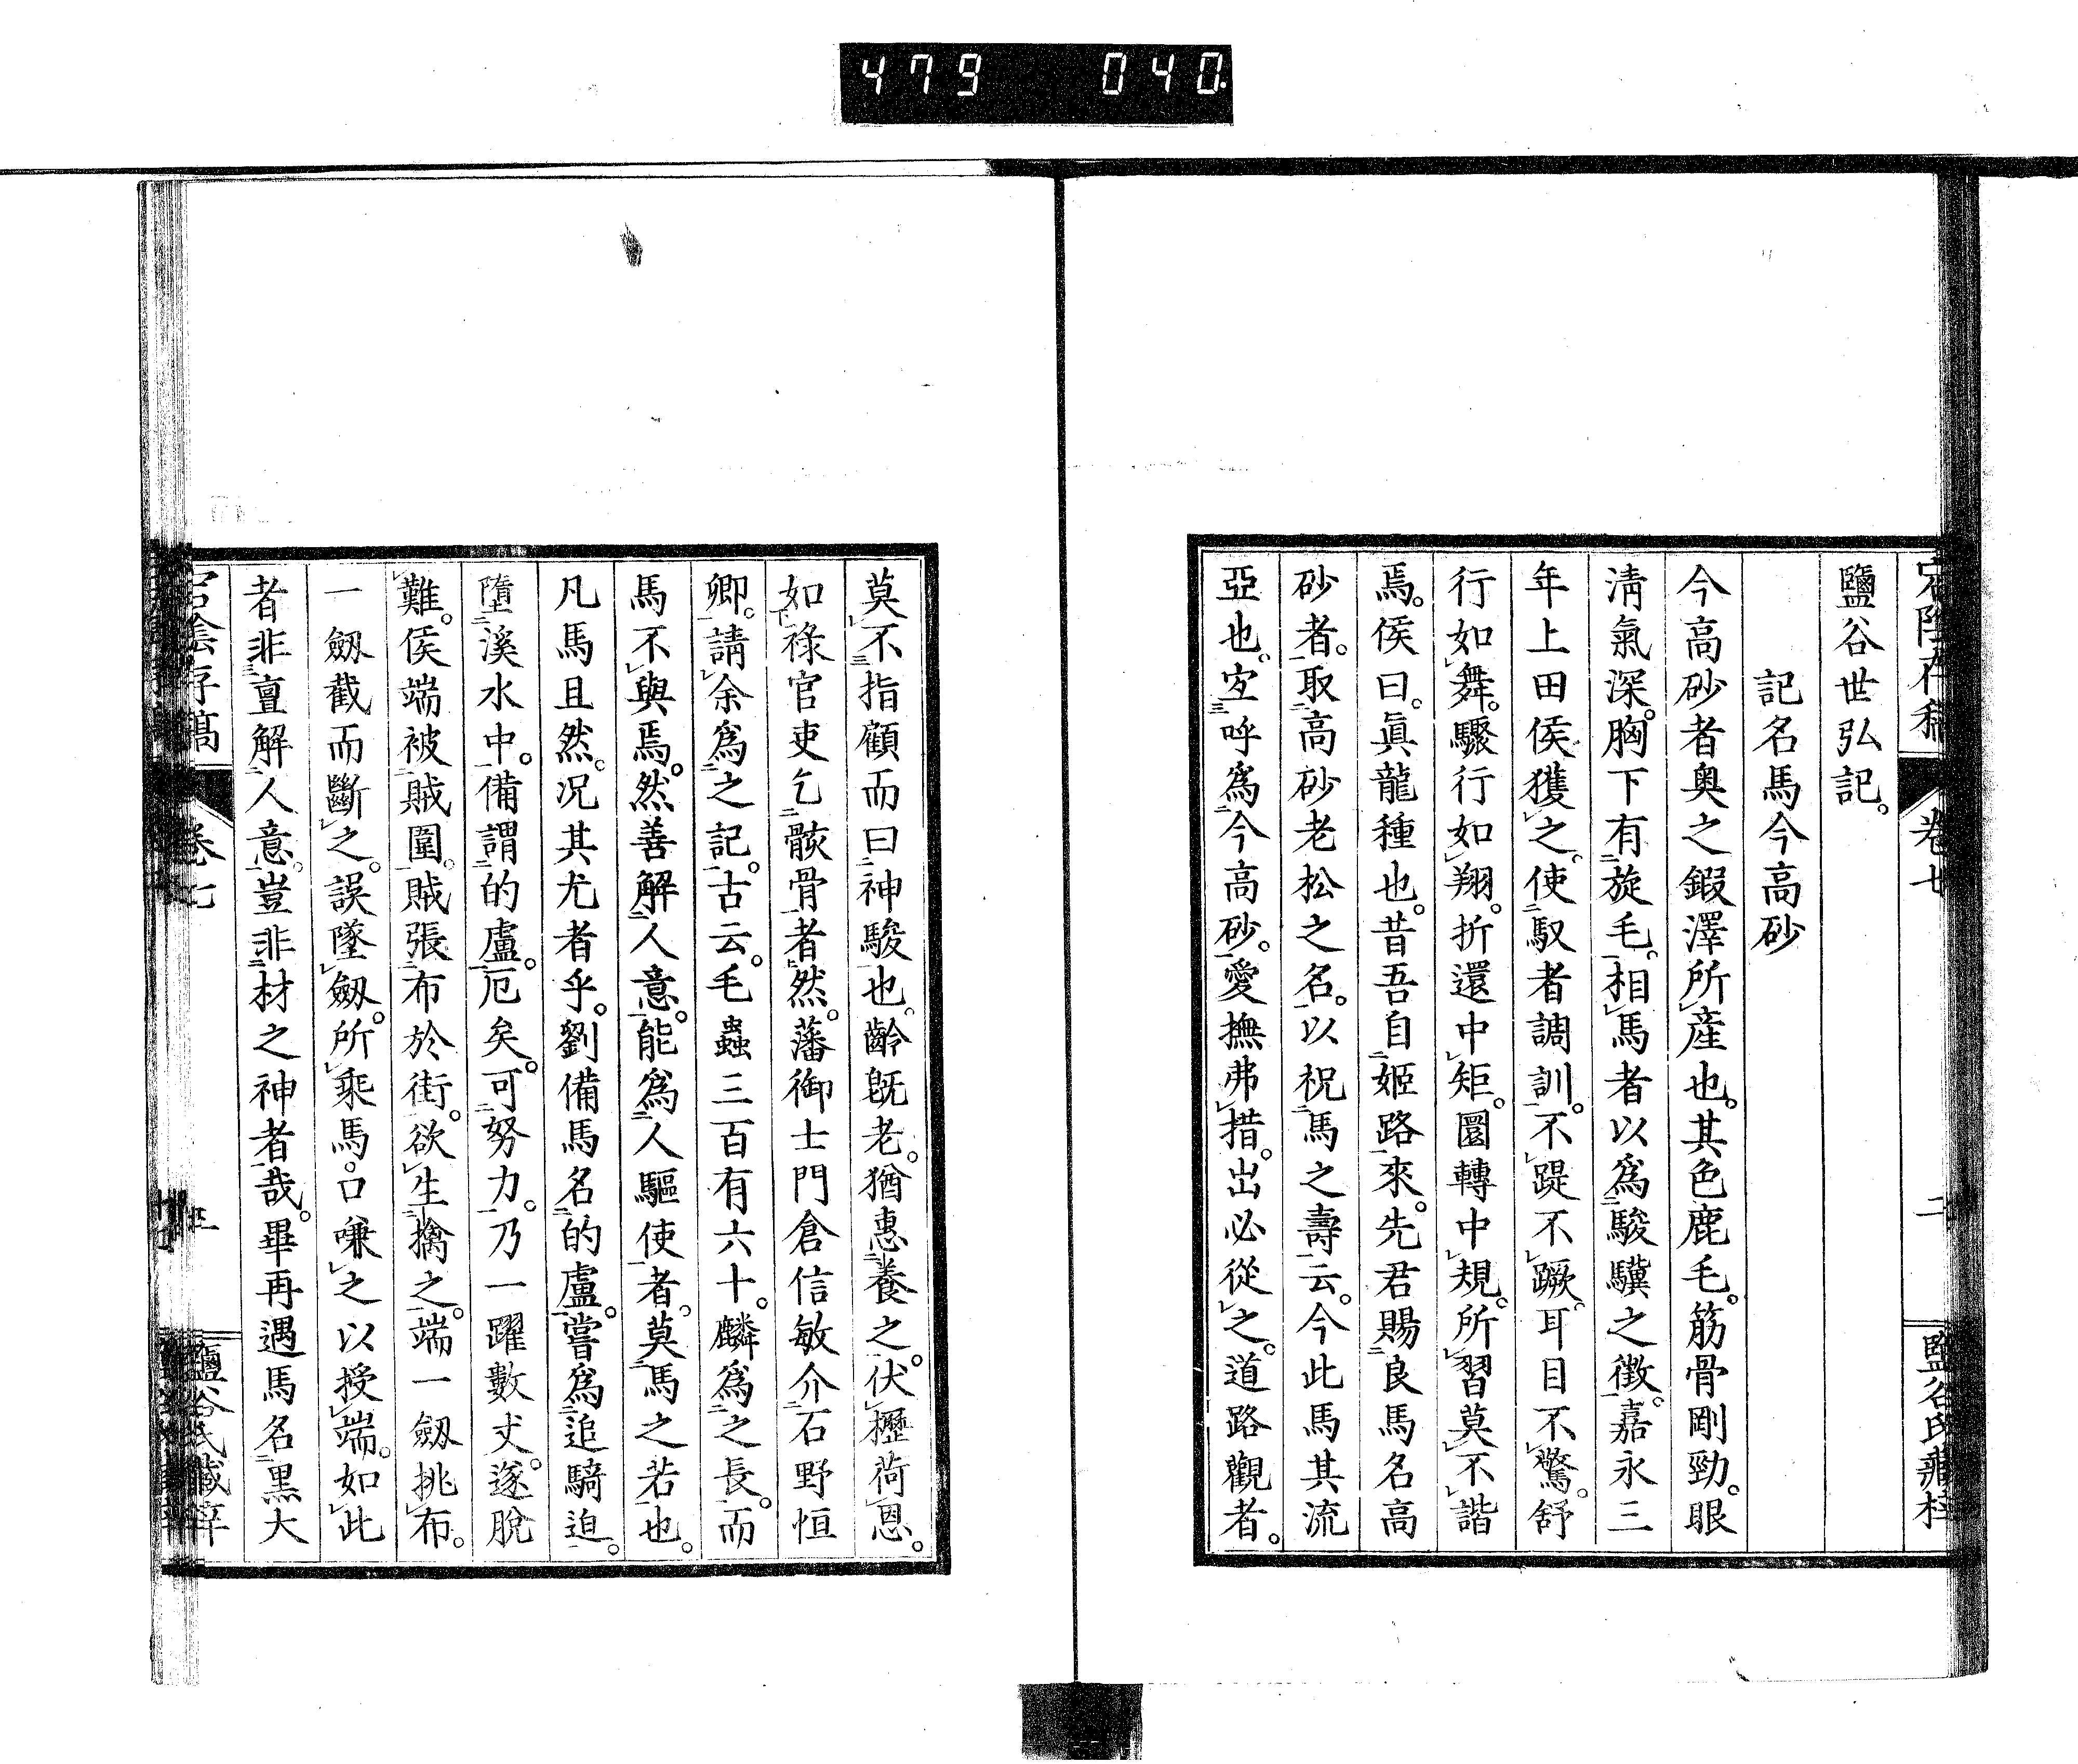 479 040.
宕陰存稿 卷七 二 鹽谷氏藏梓
鹽谷世弘記。
記名馬今高砂
今高砂者奧之鍜澤所產也。其色鹿毛。筋骨剛勁。眼
淸氣深。胸下有旋毛。相馬者以爲駿驥之徵。嘉永三
年上田侯獲之。使馭者調訓。不踶不蹶。耳目不驚。舒
行如舞。驟行如翔。折還中矩。圜轉中規。所習莫不諧
焉。侯曰。眞龍種也。昔吾自姬路來。先君賜良馬名高
砂者。取高砂老松之名。以祝馬之壽云。今此馬其流
亞也。宜呼爲今高砂。愛撫弗措。出必從之。道路觀者。
莫不指顧而曰神駿也。齡旣老。猶惠養之。伏櫪荷恩。
如祿官吏乞骸骨者然。藩御士門倉信敏介石野恒
卿。請余爲之記。古云。毛蟲三百有六十。麟爲之長。而
馬不與焉。然善解人意。能爲人驅使者。莫馬之若也。
凡馬且然。況其尤者乎。劉備馬名的盧。嘗爲追騎迫。
墮溪水中。備謂的盧。厄矣。可努力。乃一躍數丈。遂脫
難。侯端被賊圍。賊張布於街。欲生擒之。端一劔挑布。
一劔截而斷之。誤墜劔。所乘馬。口嗛之以授端。如此
者非亶解人意。豈非材之神者哉。畢再遇馬名黑大
宕陰存稿 卷七 三 鹽谷氏藏梓